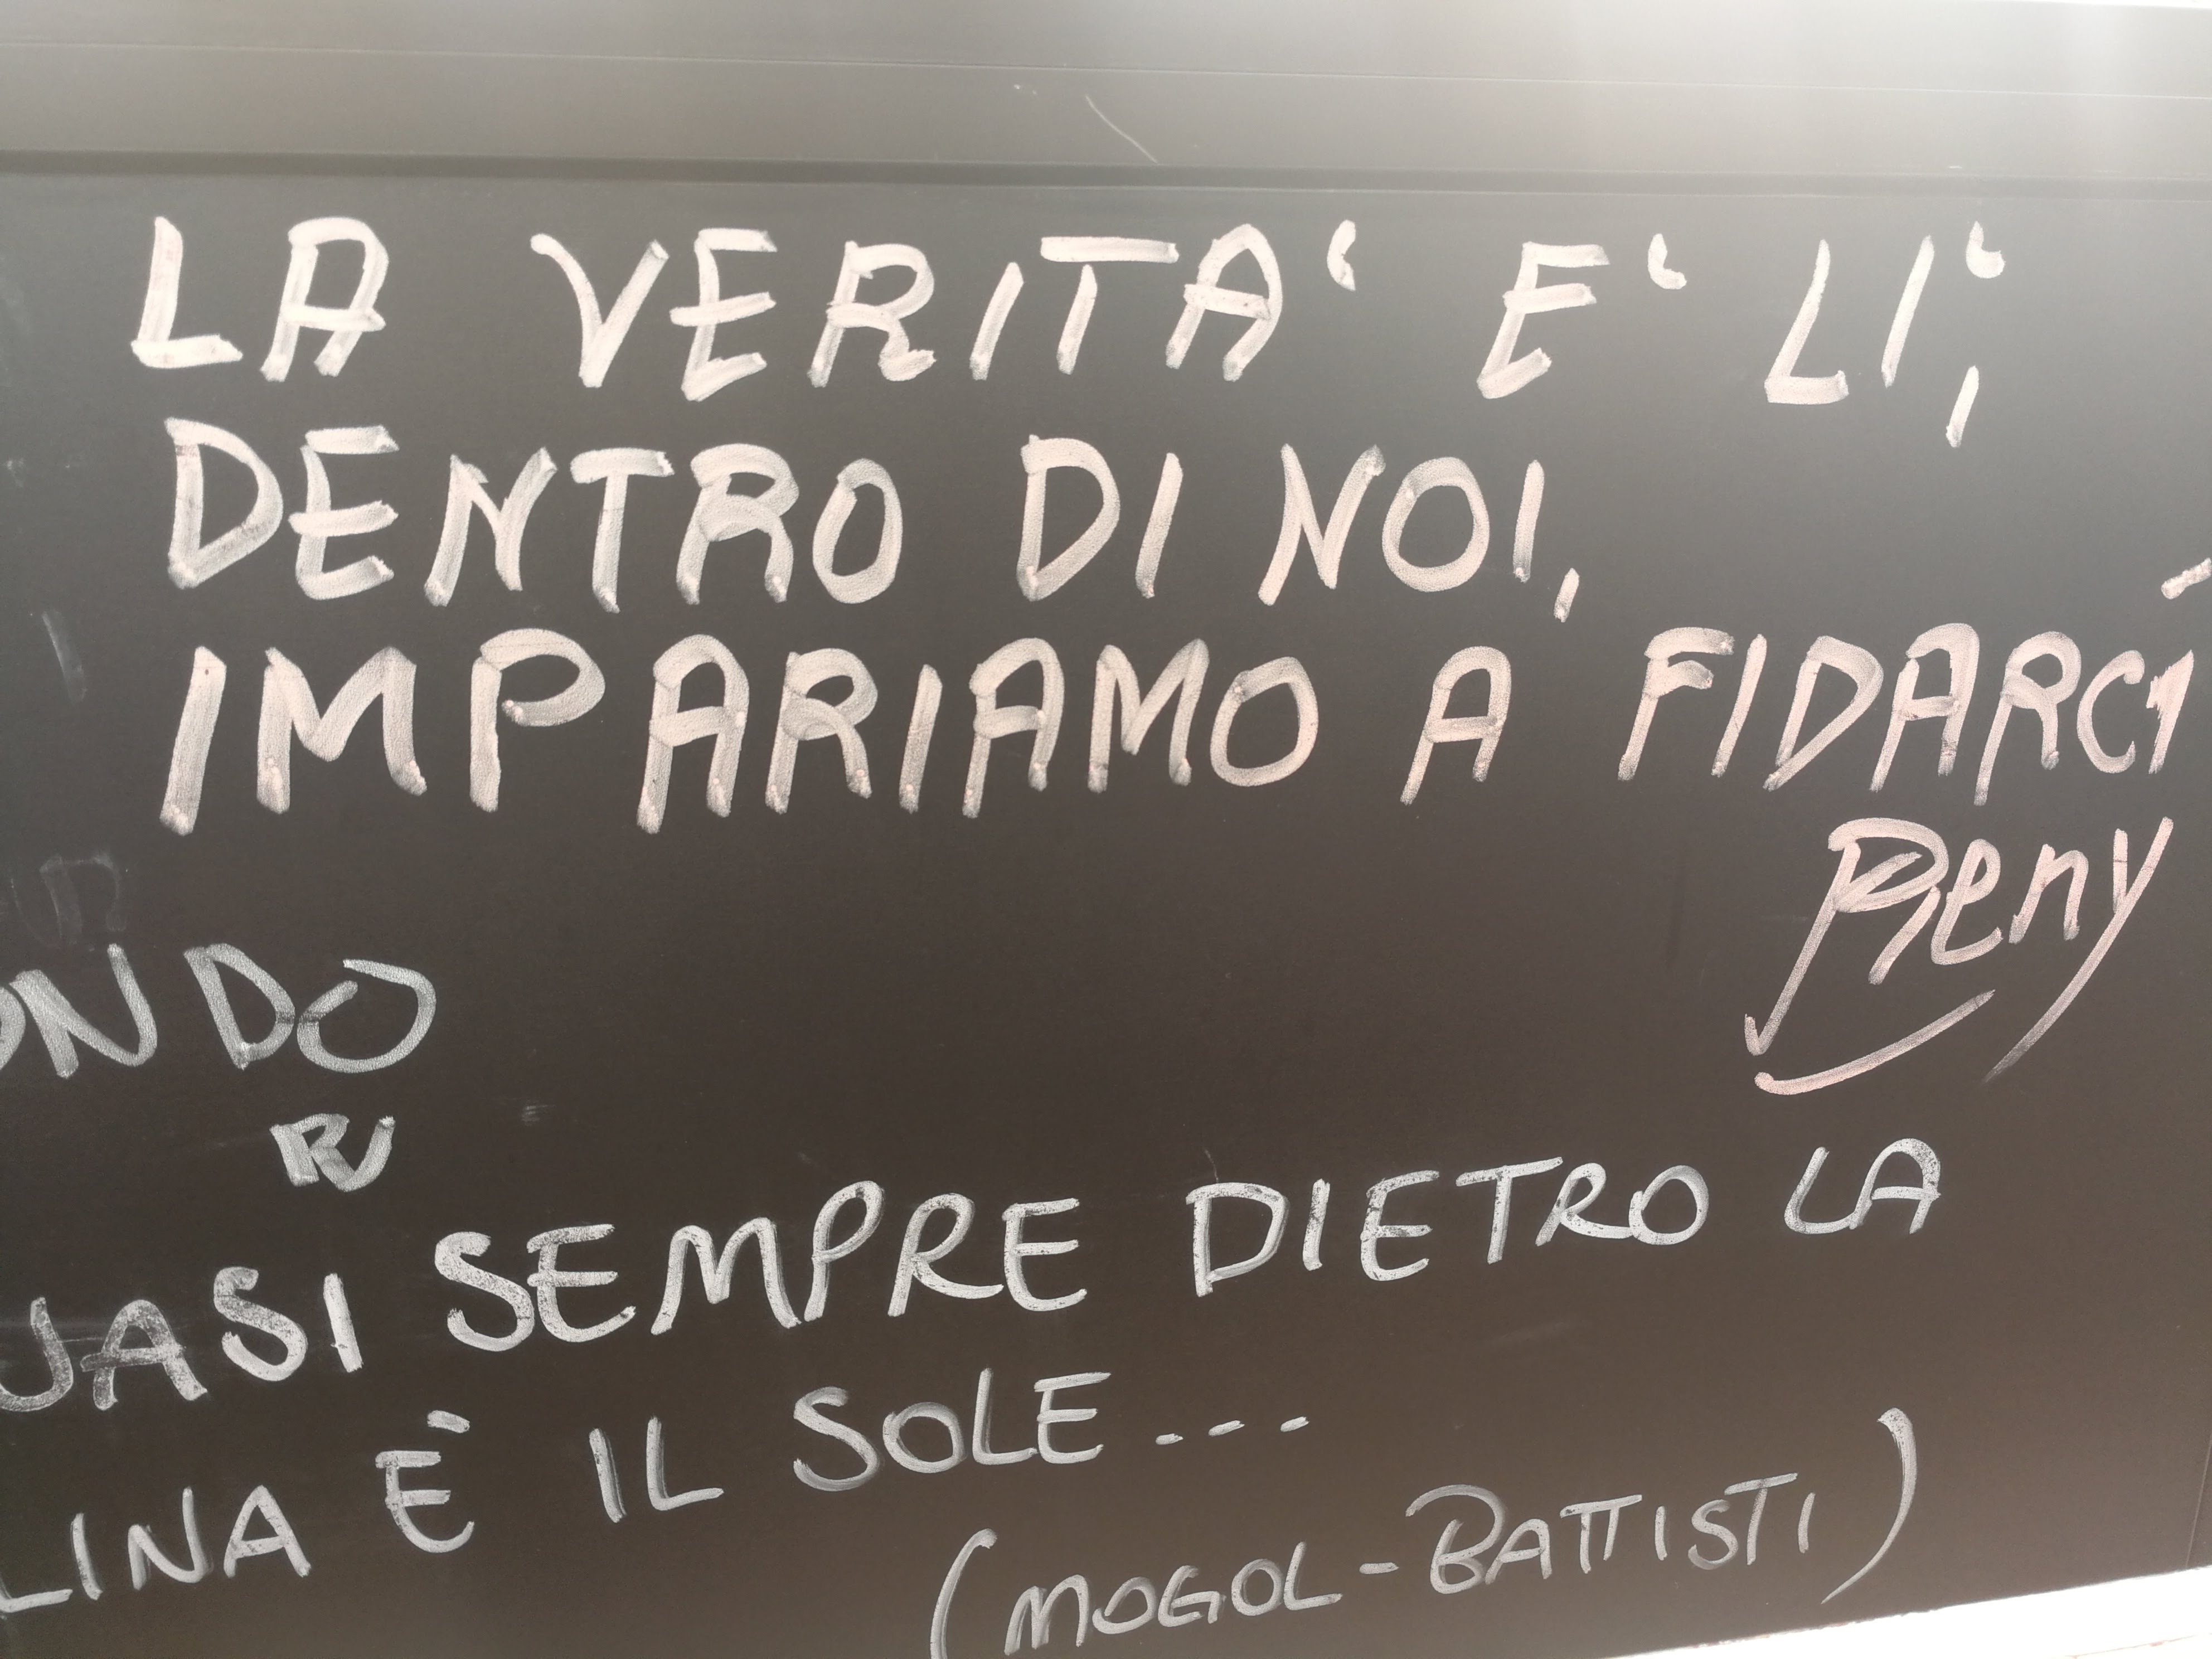 LA VERITA' E' LI',
DENTRO DI NOI,
IMPARIAMO A FIDARCI
Pieny
ONDO
UASI SEMPRE DIETRO LA
LINA È IL SOLE...
(MOGOL-BATTISTI)